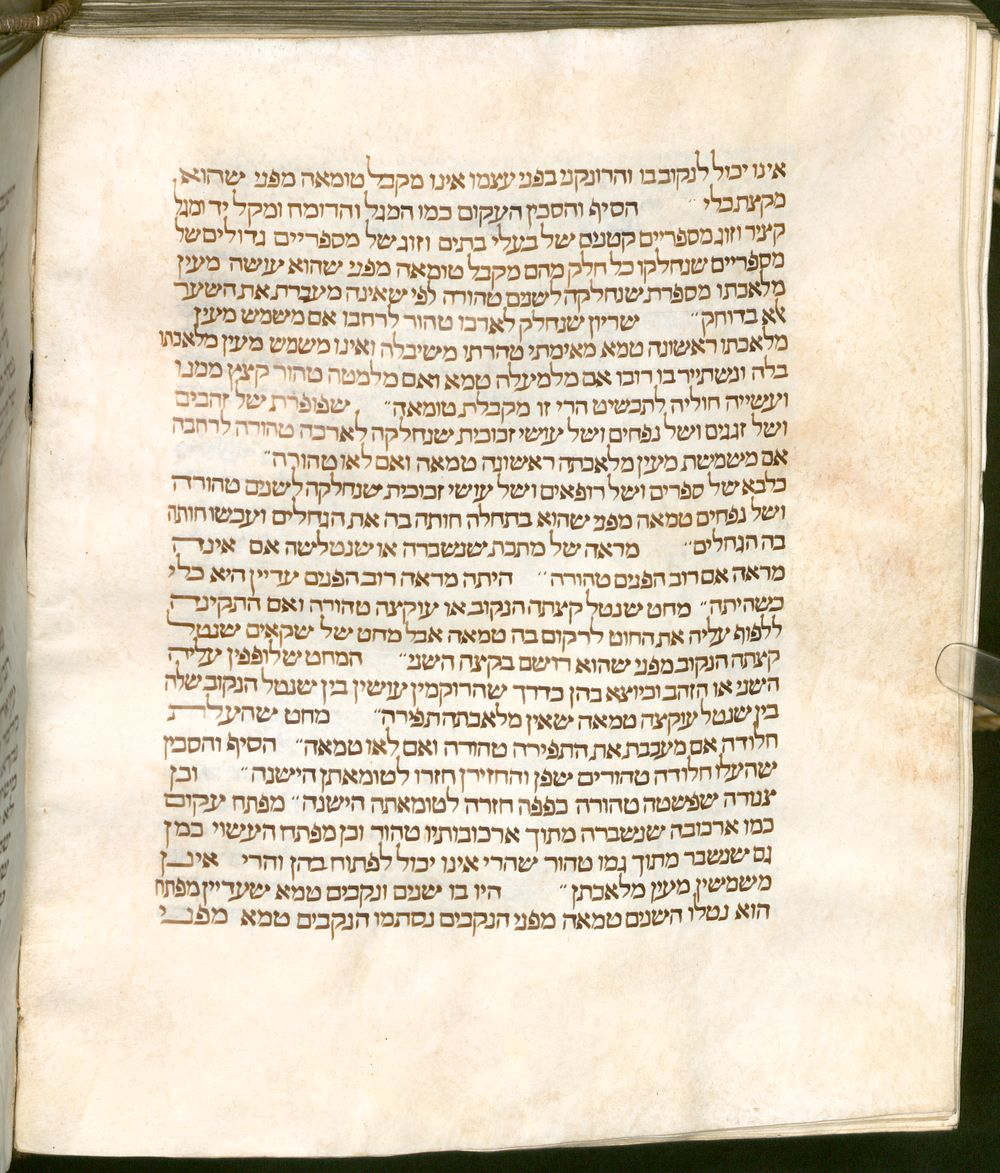 אינו יכול לנקוב בו והרונקני בפני עצמו אינו מקבל טומאה מפני שהוא
מקצת כלי״ הסיף והסכין העקום כמו המגל והרומח ומקל יד ומגל
קציר וזוג מספריים קטנים של בעלי בתים וזוג של מספריים גדולים של
מספריים שנחלקו כל חלק מהם מקבל טומאה מפני שהוא עושה מעין
מלאכתו מספרת שנחלקה לשנים טהורה לפי שאינה מעברת את השער
אלא בדוחק״ שריון שנחלק לארכו טהור לרחבו אם משמש מעין
מלאכתו ראשונה טמא מאימתי טהרתו משיבלה ואינו משמש מעין מלאכתו
בלה ונשתייר בו רובו אם מלמעלה טמא ואם מלמטה טהור קצץ ממנו
ועשייה חוליה לתכשיט הרי זו מקבלת טומאה״ שפופרת של זהבים
ושל זגגים ושל נפחים ושל עושי זכוכית שנחלקה לארכה טהורה לרחבה
אם משמשת מעין מלאכתה ראשונה טמאה ואם לאו טהורה״
כלבא של ספרים ושל רופאים ושל עושי זכוכית שנחלקה לשנים טהורה
ושל נפחים טמאה מפני שהוא בתחלה חותה בה את הגחלים ועכשו חותה
בה הגחלים״ מראה של מתכת שנשברה או שנטלישה אם אינה
מראה אם רוב הפנים טהורה״ היתה מראה רוב הפנים עדיין היא כלי
כשהיתה״ מחט שנטל קצתה הנקוב או עוקצה טהורה ואם התקינה
ללפוף עליה את החוט לרקום בה טמאה אבל מחט של שקאים שנטל
קצתה הנקוב מפני שהוא רושם בקצה השני״ המחט שלופפין עליה
השני או הזהב וכיוצא בהן כדרך שהרוקמין עושין בין שנטל הנקוב שלה
בין שנטל עוקצה טמאה שאין מלאכתה תפירה״ מחט שהעלת
חלודה אם מעכבת את התפירה טהורה ואם לאו טמאה״ הסיף והסכין
שהעלו חלודה טהורים שפן והחזירן חזרו לטומאתן הישנה״ וכן
צנורה שפשטה טהורה כפפה חזרה לטומאתה הישנה״ מפתח עקום
כמו ארכובה שנשברה מתוך ארכובותיו טהור וכן מפתח העשוי כמן
גם שנשבר מתוך גמו טהור שהרי אינו יכול לפתוח בהן והרי אינן
משמשין מעין מלאכתן״ היו בו שנים ונקבים טמא שעדיין מפתח
הוא נטלו השנים טמאה מפני הנקבים נסתמו הנקבים טמא מפני